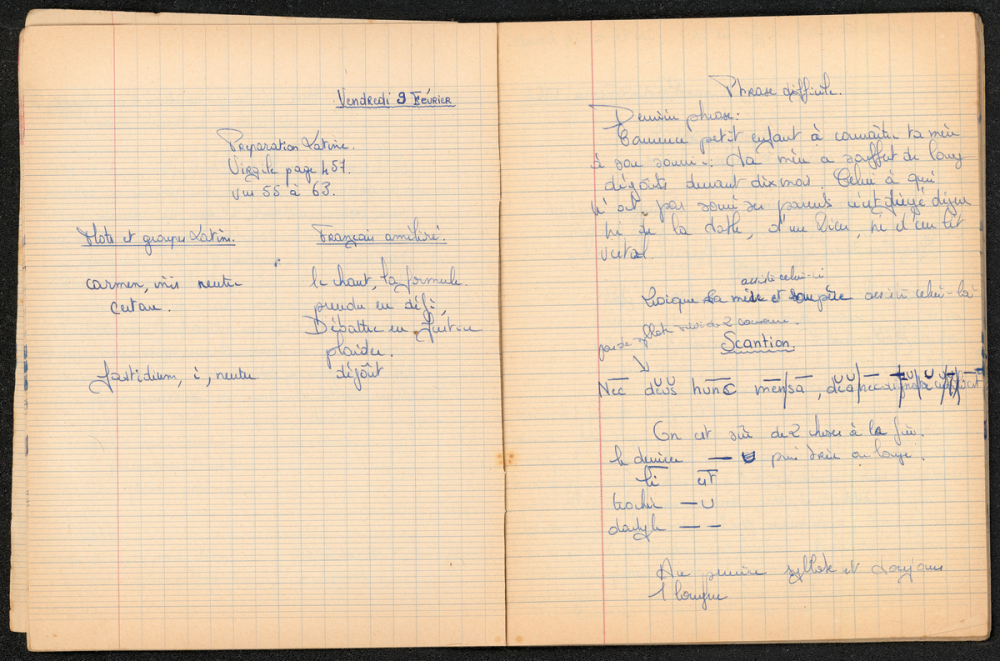 Vendredi 9 Février
Préparation Latine.
Virgile page 457.
vers 55 à 63.
Mots et groupes Latins.
Français amélioré.
carmen, inis neutre
le chant, la formule.
certare.
prendre en défi,
Débattre en Justice
plaider.
fastidium, i, neutre
dégoût
Phrase difficile.
Dernière phrase:
Commence petit enfant à connaître ta mère
à son sourire. Ta mère a souffert de longs
dégoûts durant dix mois. Celui à qui
n'ont pas souri ses parents n'est jugé digne
ni de la table, d'un Dieu, ni d'un lit
assiste celui-ci
Lorsque la mère et son père assiste celui-là
suivi de 2 consonnes.
Scantion.
Nec deus hunc mensa, dea nec dignata cubili est
On est sûr de 2 choses à la fois.
le dernier — ∪ peut être ou longe.
li est
trochée — ∪
dactyle — —
La première syllabe est toujours
1 longue